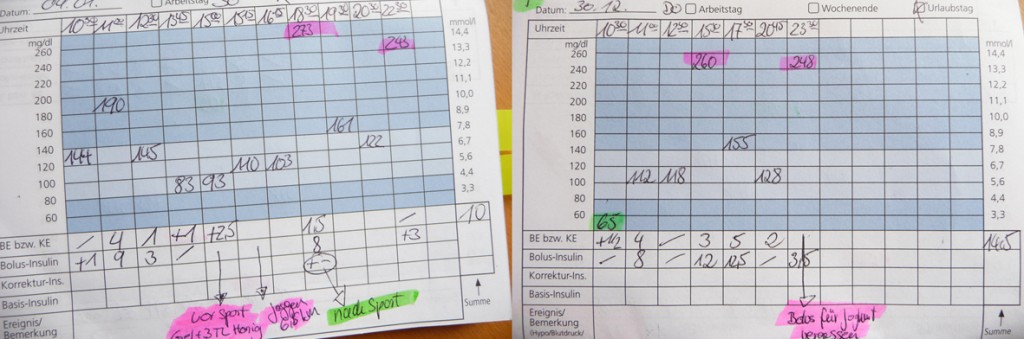 Datum: 04.01. Arbeitstag
Uhrzeit 10 11 12 15 16 18 19 20 22 mmol/l
mg/dl 273 14,4
260 243 13,3
240 12,2
220 11,1
200 190 10,0
180 8,9
160 161 7,8
140 144 145 122 6,7
120 110 103 5,6
100 83 93 4,4
80 3,3
60
BE bzw. KE / 4 1 +1 +2,5 1,5 / 10
Bolus-Insulin +1 9 3 / 8 +3
Korrektur-Ins. +-
Basis-Insulin
Summe
Ereignis/
Bemerkung
vor Sport
+ 3TL Honig
joggen
km
nach Sport
Datum: 30.12. DO Arbeitstag Wochenende Urlaubstag
Uhrzeit 10³⁰ 11⁰⁰ 12 15 17³⁰ 20⁴⁵ 23³⁰ mmol/l
mg/dl
260 14,4
240 260 248 13,3
220 12,2
200 11,1
180 10,0
160 8,9
140 155 7,8
120 6,7
100 112 118 128 5,6
80 4,4
60 65 3,3
BE bzw. KE +1/2 4 / 3 5 2 14,5
Bolus-Insulin / 8 / 12 12,5 / 3,5
Korrektur-Ins.
Basis-Insulin
Ereignis/
Bemerkung
(Hypo/Blutdruck/
Summe
Bolus für Jogurt
vergessen